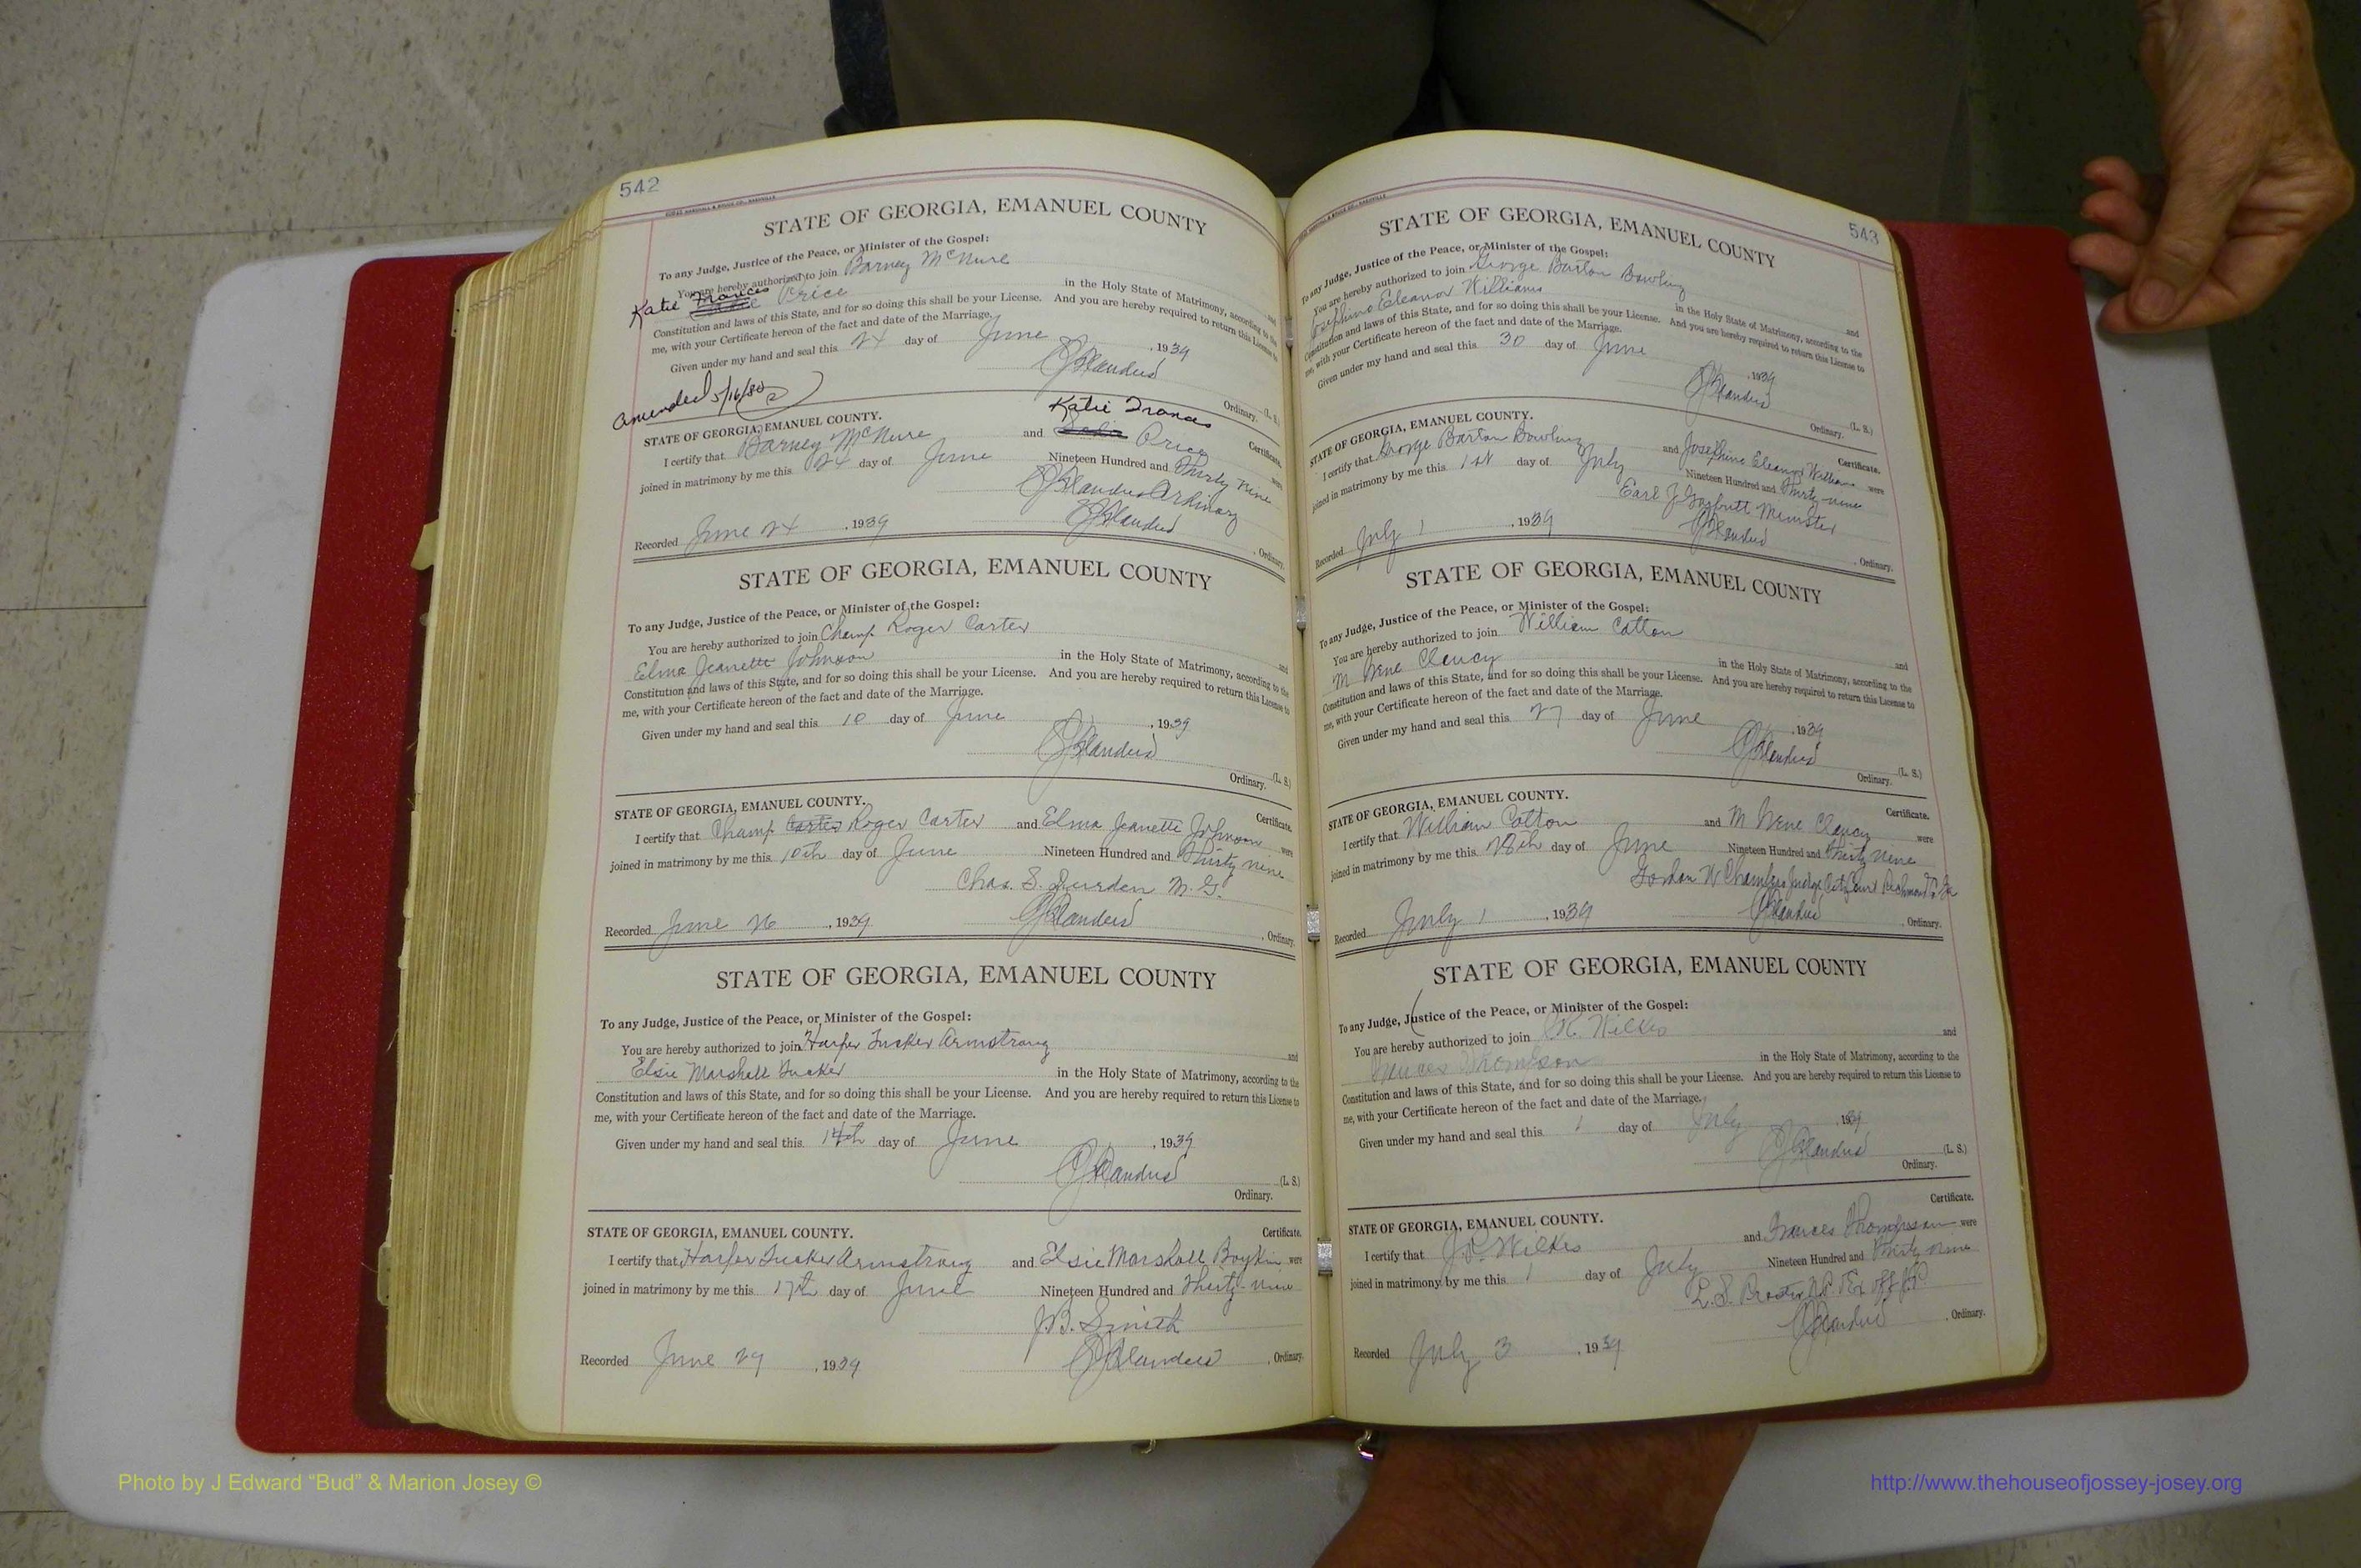 542
STATE OF GEORGIA, EMANUEL COUNTY
To any Judge, Justice of the Peace, or Minister of the Gospel:
You are hereby authorized to join Barney McNure
and
Katie Frances Price in the Holy State of Matrimony, according to the
Constitution and laws of this State, and for so doing this shall be your License. And you are hereby required to return this License to
me, with your Certificate hereon of the fact and date of the Marriage.
Given under my hand and seal this 24 day of June, 1939
(L. S.)
Ordinary.
amended 5/16/80
STATE OF GEORGIA, EMANUEL COUNTY.
Certificate.
I certify that Barney McNure and Katie Frances Price were
joined in matrimony by me this 24 day of June Nineteen Hundred and Thirty nine
Ordinary
Recorded June 24, 1939
, Ordinary.
STATE OF GEORGIA, EMANUEL COUNTY
To any Judge, Justice of the Peace, or Minister of the Gospel:
You are hereby authorized to join Champ Roger Carter
and
Elma Jeanette Johnson in the Holy State of Matrimony, according to the
Constitution and laws of this State, and for so doing this shall be your License. And you are hereby required to return this License to
me, with your Certificate hereon of the fact and date of the Marriage.
Given under my hand and seal this 10 day of June, 1939
(L. S.)
Ordinary.
STATE OF GEORGIA, EMANUEL COUNTY.
Certificate.
I certify that Champ Carter Roger Carter and Elma Jeanette Johnson were
joined in matrimony by me this 10th day of June Nineteen Hundred and Thirty nine
Chas. S. Durden M. G.
Recorded June 26, 1939
, Ordinary.
STATE OF GEORGIA, EMANUEL COUNTY
To any Judge, Justice of the Peace, or Minister of the Gospel:
You are hereby authorized to join Harper Tucker Armstrong
and
Elsie Marshall Tucker in the Holy State of Matrimony, according to the
Constitution and laws of this State, and for so doing this shall be your License. And you are hereby required to return this License to
me, with your Certificate hereon of the fact and date of the Marriage.
Given under my hand and seal this 14th day of June, 1939
(L. S.)
Ordinary.
STATE OF GEORGIA, EMANUEL COUNTY.
Certificate.
I certify that Harper Tucker Armstrong and Elsie Marshall Boykin were
joined in matrimony by me this 17th day of June Nineteen Hundred and Thirty-nine
J.B. Smith
Recorded June 29, 1939
, Ordinary.
543
STATE OF GEORGIA, EMANUEL COUNTY
To any Judge, Justice of the Peace, or Minister of the Gospel:
You are hereby authorized to join George Barton Bowling
and
Josephine Eleanor Williams in the Holy State of Matrimony, according to the
Constitution and laws of this State, and for so doing this shall be your License. And you are hereby required to return this License to
me, with your Certificate hereon of the fact and date of the Marriage.
Given under my hand and seal this 30 day of June, 1939
(L. S.)
Ordinary.
STATE OF GEORGIA, EMANUEL COUNTY.
Certificate.
I certify that George Barton Bowling and Josephine Eleanor Williams were
joined in matrimony by me this 1st day of July Nineteen Hundred and Thirty-nine
Earl Minister
Recorded July 1, 1939
, Ordinary.
STATE OF GEORGIA, EMANUEL COUNTY
To any Judge, Justice of the Peace, or Minister of the Gospel:
You are hereby authorized to join William Cotton
and
M Irene Clancy in the Holy State of Matrimony, according to the
Constitution and laws of this State, and for so doing this shall be your License. And you are hereby required to return this License to
me, with your Certificate hereon of the fact and date of the Marriage.
Given under my hand and seal this 27 day of June, 1939
(L. S.)
Ordinary.
STATE OF GEORGIA, EMANUEL COUNTY.
Certificate.
I certify that William Cotton and M Irene Clancy were
joined in matrimony by me this 28th day of June Nineteen Hundred and Thirty nine
Gordon W Chambers Judge City Court Richmond Co Ga
Recorded July 1, 1939
, Ordinary.
STATE OF GEORGIA, EMANUEL COUNTY
To any Judge, Justice of the Peace, or Minister of the Gospel:
You are hereby authorized to join J.R. Wilkes
and
Frances Thompson in the Holy State of Matrimony, according to the
Constitution and laws of this State, and for so doing this shall be your License. And you are hereby required to return this License to
me, with your Certificate hereon of the fact and date of the Marriage.
Given under my hand and seal this 1 day of July, 1939
(L. S.)
Ordinary.
STATE OF GEORGIA, EMANUEL COUNTY.
Certificate.
I certify that J.R. Wilkes and Frances Thompson were
joined in matrimony by me this 1 day of July Nineteen Hundred and Thirty nine
L.S. Ex off J.P.
Recorded July 3, 1939
, Ordinary.
Photo by J Edward “Bud” & Marion Josey ©
http://www.thehouseofjossey-josey.org